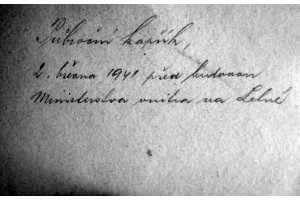 2. března 1941 před budovou
Ministerstva vnitra na Letné